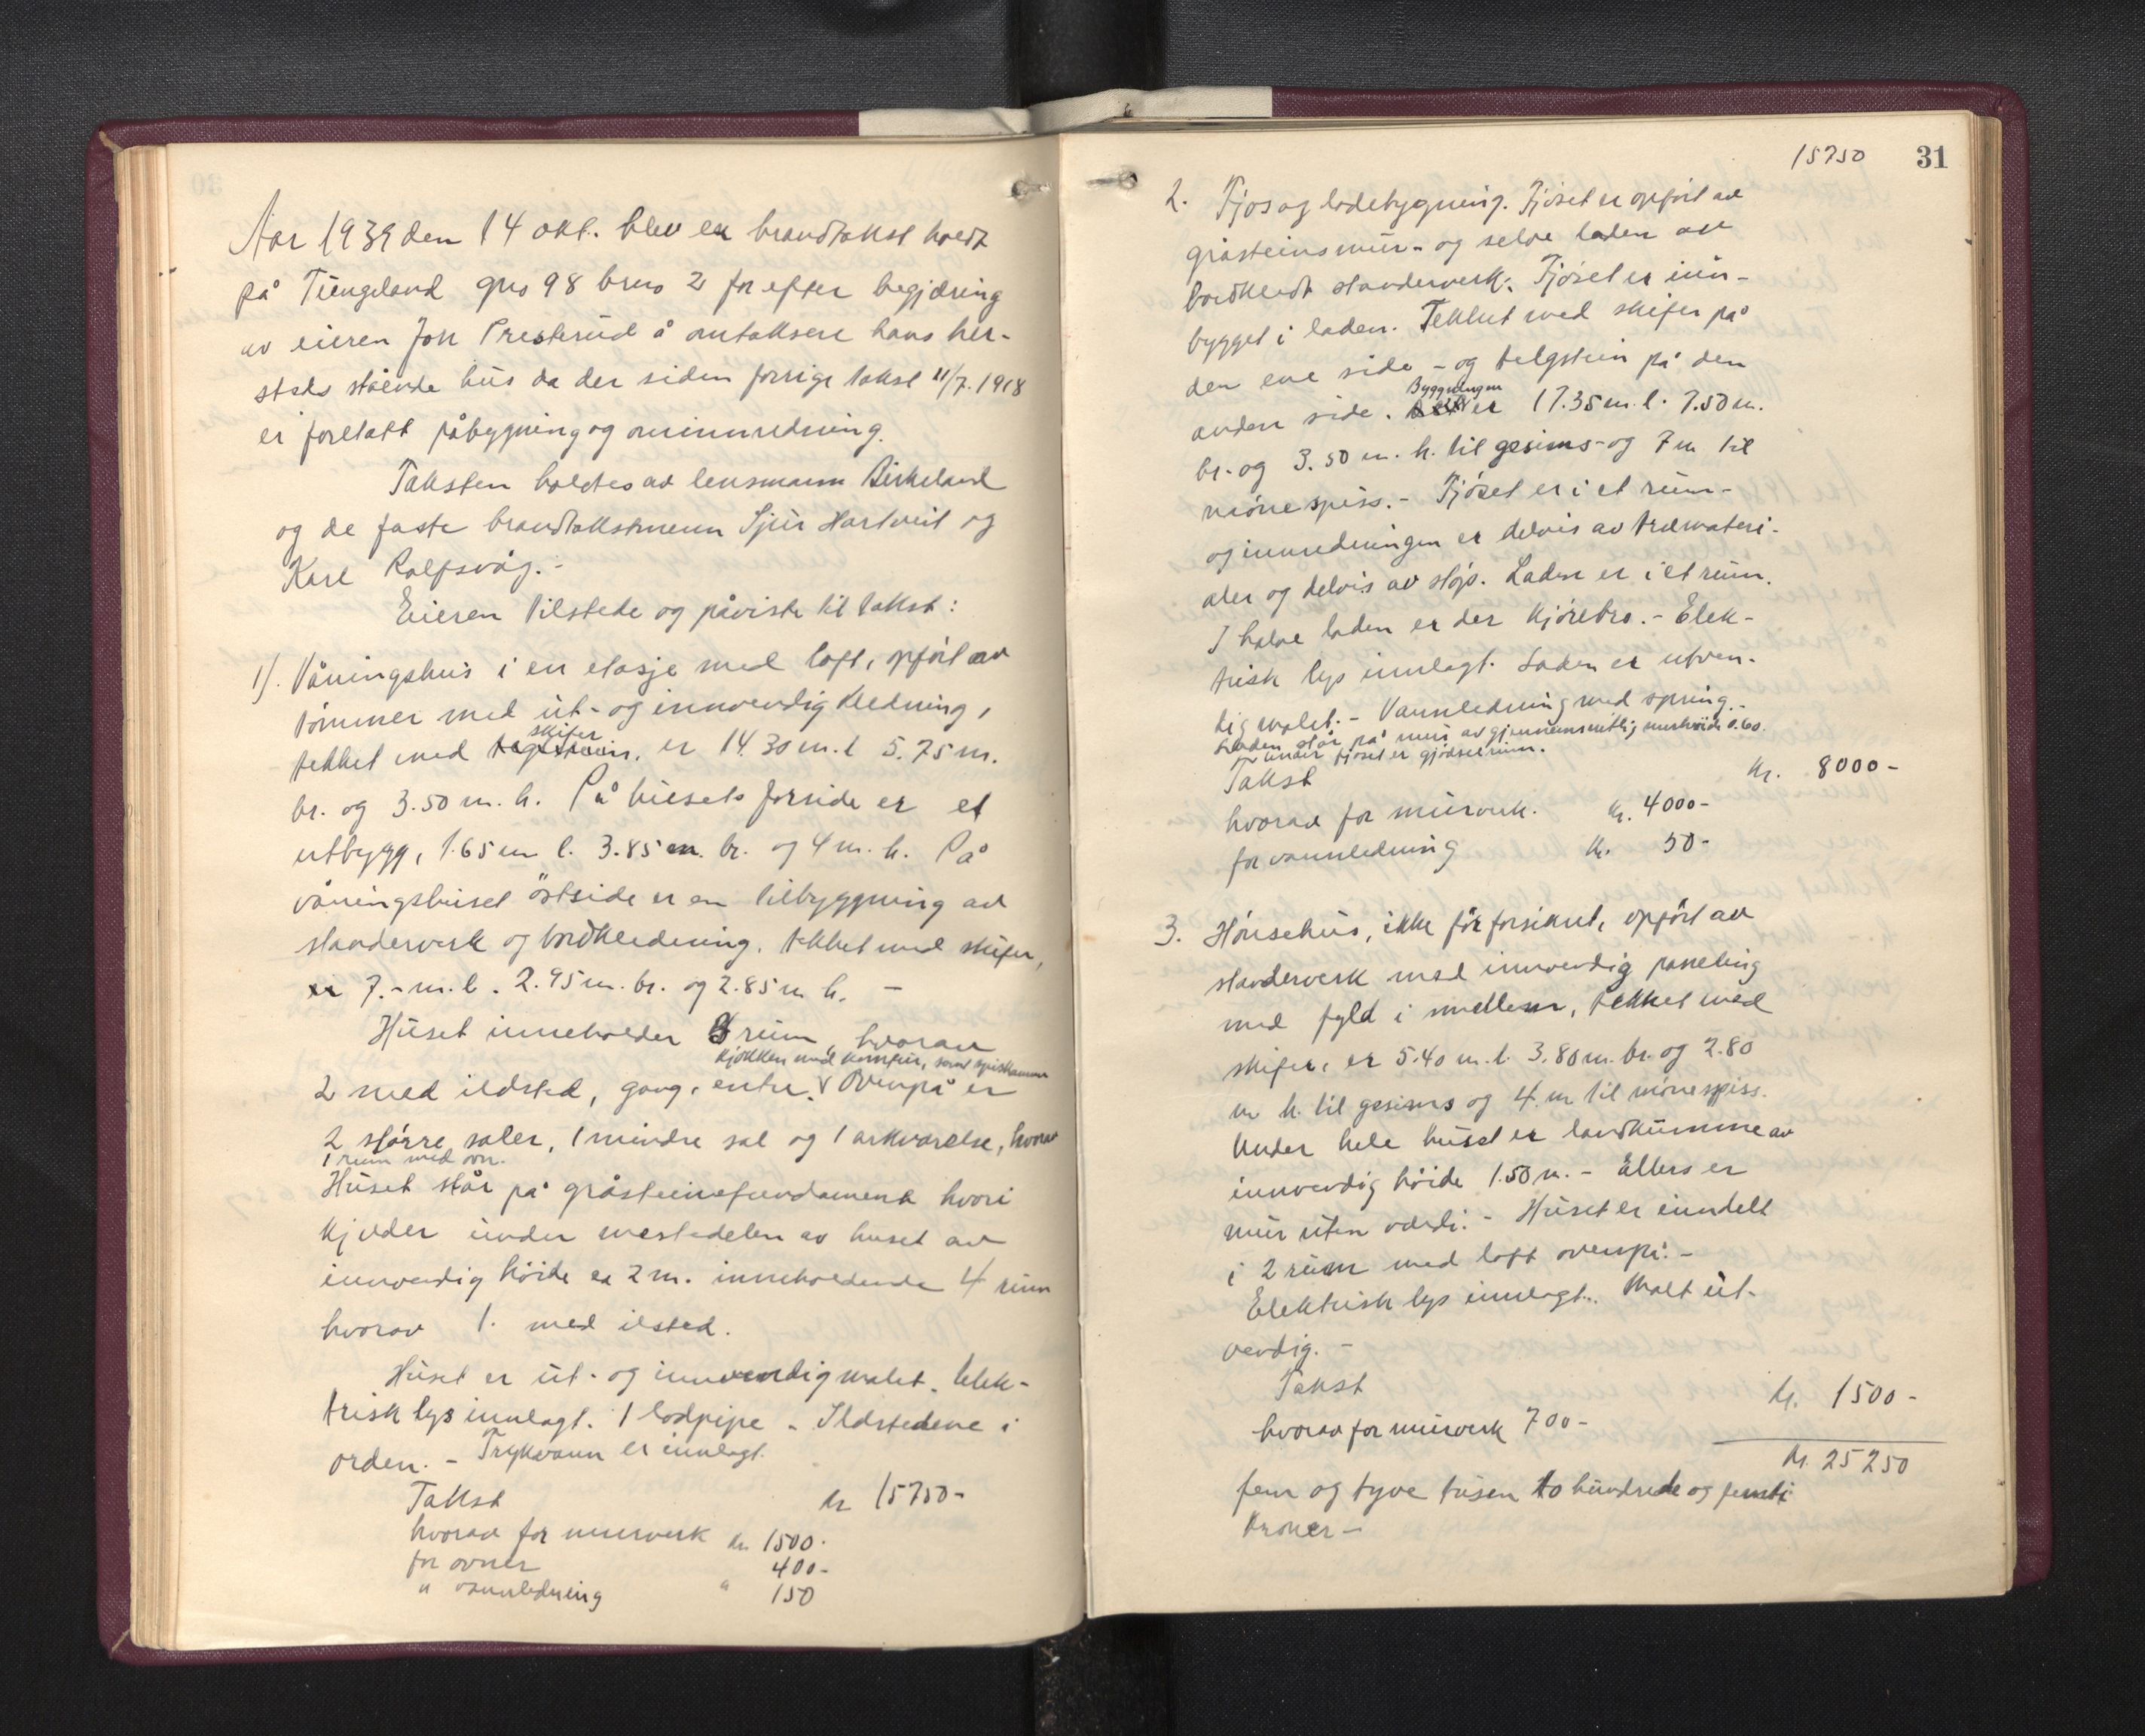 Aar 1939 den 14 okt. blev en brandtakst holdt
på Tungeland gno 98 brno 2 for efter begjæring
av eieren Jon Presterud å omtaksere hans her-
steds stående hus da der siden forrige takst 11/7.1918
er foretatt påbygning og ominnredning.
Taksten holdtes av lensmann Birkeland
og de faste brandtakstmenn Sjur Hartveit og
Karl Rolfsvåg.-
Eieren tilstede og påviste til takst:
1). Våningshus i en etasje med loft, opført av
tømmer med ut- og innvendig kledning,
skifer
tekket med teglstein, er 14.30 m. l 5.75 m.
br. og 3.50 m. h. På husets forside er et
utbygg, 1.65 m l. 3.85 m. br. og 4 m. h. På
våningshuset østside er en tilbyggning av
stenderverk og bordkledning, tekket med skifer,
er 7.- m. l. 2.95 m. br. og 2.85 m h. -
Huset inneholder 8 rum, hvorav
kjøkken med komfur, samt spiskammer
2 med ildsted, gang, entre. V Ovenpå er
2 større saler, 1 mindre sal og 1 arkværelse, hvorav
1 rum med ovn.
Huset står på gråsteinsfundament hvori
kjelder under vestedelen av huset av
innvendig høide ca 2 m. inneholdende 4 rum
hvorav 1. med ilsted.
Huset er ut- og innvendig malet. Elek-
trisk lys innlagt. 1 lodpipe - Ildstedene i
orden. - Trykvann er innlagt.
Takst kr 15750-
hvorav for murverk kr. 1500.
for ovner 400-
" vannledning " 150
15750 31
2. Fjos og ladebygning. Fjøset er opført av
gråsteinsmur- og selve laden av
bordkledt stenderverk. Fjøset er inn-
bygget i laden. Tekket med skifer på
den ene side - og telgstein på den
Byggningen
anden side. er 17.35 m. l. 7.50 m.
br. og 3.50 m. h. til gesims- og 7 m til
mønespiss. - Fjøset er i et rum-
og innredningen er delvis av trematri-
aler og delvis av støp. Laden er i et rum.
I halve laden er der kjørebro. - Elek-
trisk lys innlagt. Laden er utven-
dig malet. - Vannledning med spring.-
Laden står på mur av gjennemsnittlig murhøide 0.60.
Under fjøset er gjødselrum.
Takst kr. 8000-
hvorav for murverk. kr. 4000-
for vannledning kr. 50-
3. Hønsehus, ikke før forsikret, opført av
stenderverk med innvendig paneling
med fyld i mellem, tekket med
skifer, er 5.40 m. l. 3.80 m. br. og 2.80
m h. til gesims og 4. m til mønespiss.
Under hele huset er landkumme av
innvendig høide 1.50 m. - Ellers er
mur uten værdi. - Huset er inndelt
i 2 rum med loft ovenpå. -
Elektrisk lys innlagt. Malt ut-
vendig. -
Takst kr. 1500-
hvorav for murverk 700-
kr. 25250
fem og tyve tusen to hundrede og femti
kroner -